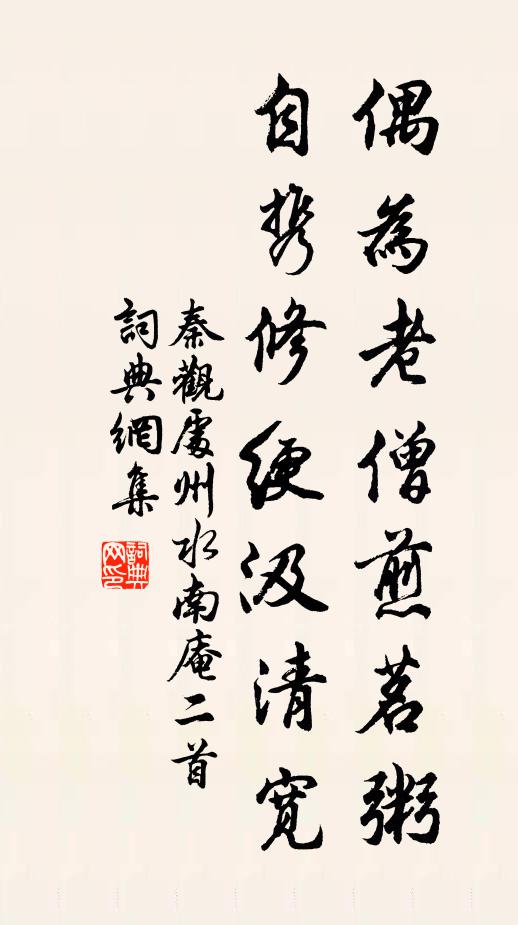 偶為老僧煎茗粥
自携修綆汲清寬
秦觀處州水南庵二首
詞典網集
詞典網印